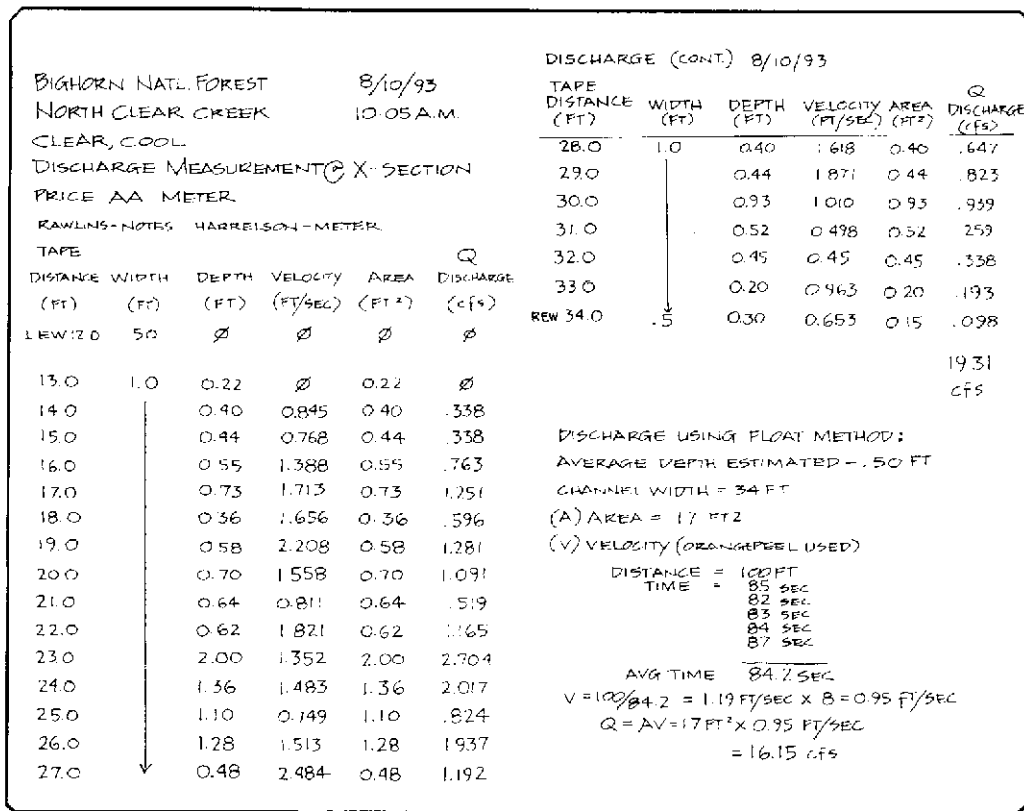 BIGHORN NATL. FOREST 8/10/93
NORTH CLEAR CREEK 10:05 A.M.
CLEAR, COOL
DISCHARGE MEASUREMENT @ X-SECTION
PRICE AA METER
RAWLINS-NOTES HARRELSON-METER
TAPE Q
DISTANCE WIDTH DEPTH VELOCITY AREA DISCHARGE
(FT) (FT) (FT) (FT/SEC) (FT²) (cfs)
LEW 12.0 .50 Ø Ø Ø Ø
13.0 1.0 0.22 Ø 0.22 Ø
14.0 0.40 0.845 0.40 .338
15.0 0.44 0.768 0.44 .338
16.0 0.55 1.388 0.55 .763
17.0 0.73 1.713 0.73 1.251
18.0 0.36 1.656 0.36 .596
19.0 0.58 2.208 0.58 1.281
20.0 0.70 1.558 0.70 1.091
21.0 0.64 0.811 0.64 .519
22.0 0.62 1.821 0.62 1.165
23.0 2.00 1.352 2.00 2.704
24.0 1.36 1.483 1.36 2.017
25.0 1.10 0.749 1.10 .824
26.0 1.28 1.513 1.28 1.937
27.0 0.48 2.484 0.48 1.192
DISCHARGE (CONT.) 8/10/93
TAPE Q
DISTANCE WIDTH DEPTH VELOCITY AREA DISCHARGE
(FT) (FT) (FT) (FT/SEC) (FT²) (cfs)
28.0 1.0 0.40 1.618 0.40 .647
29.0 0.44 1.871 0.44 .823
30.0 0.93 1.010 0.93 .939
31.0 0.52 0.498 0.52 .259
32.0 0.45 0.45 0.45 .338
33.0 0.20 0.963 0.20 .193
REW 34.0 .5 0.30 0.653 0.15 .098
19.31
cfs
DISCHARGE USING FLOAT METHOD:
AVERAGE DEPTH ESTIMATED - .50 FT
CHANNEL WIDTH = 34 FT
(A) AREA = 17 FT2
(V) VELOCITY (ORANGEPEEL USED)
DISTANCE = 100 FT
TIME = 85 SEC
82 SEC
83 SEC
84 SEC
87 SEC
AVG TIME 84.2 SEC
V = 100/84.2 = 1.19 FT/SEC X .8 = 0.95 FT/SEC
Q = AV = 17 FT² X 0.95 FT/SEC
= 16.15 cfs